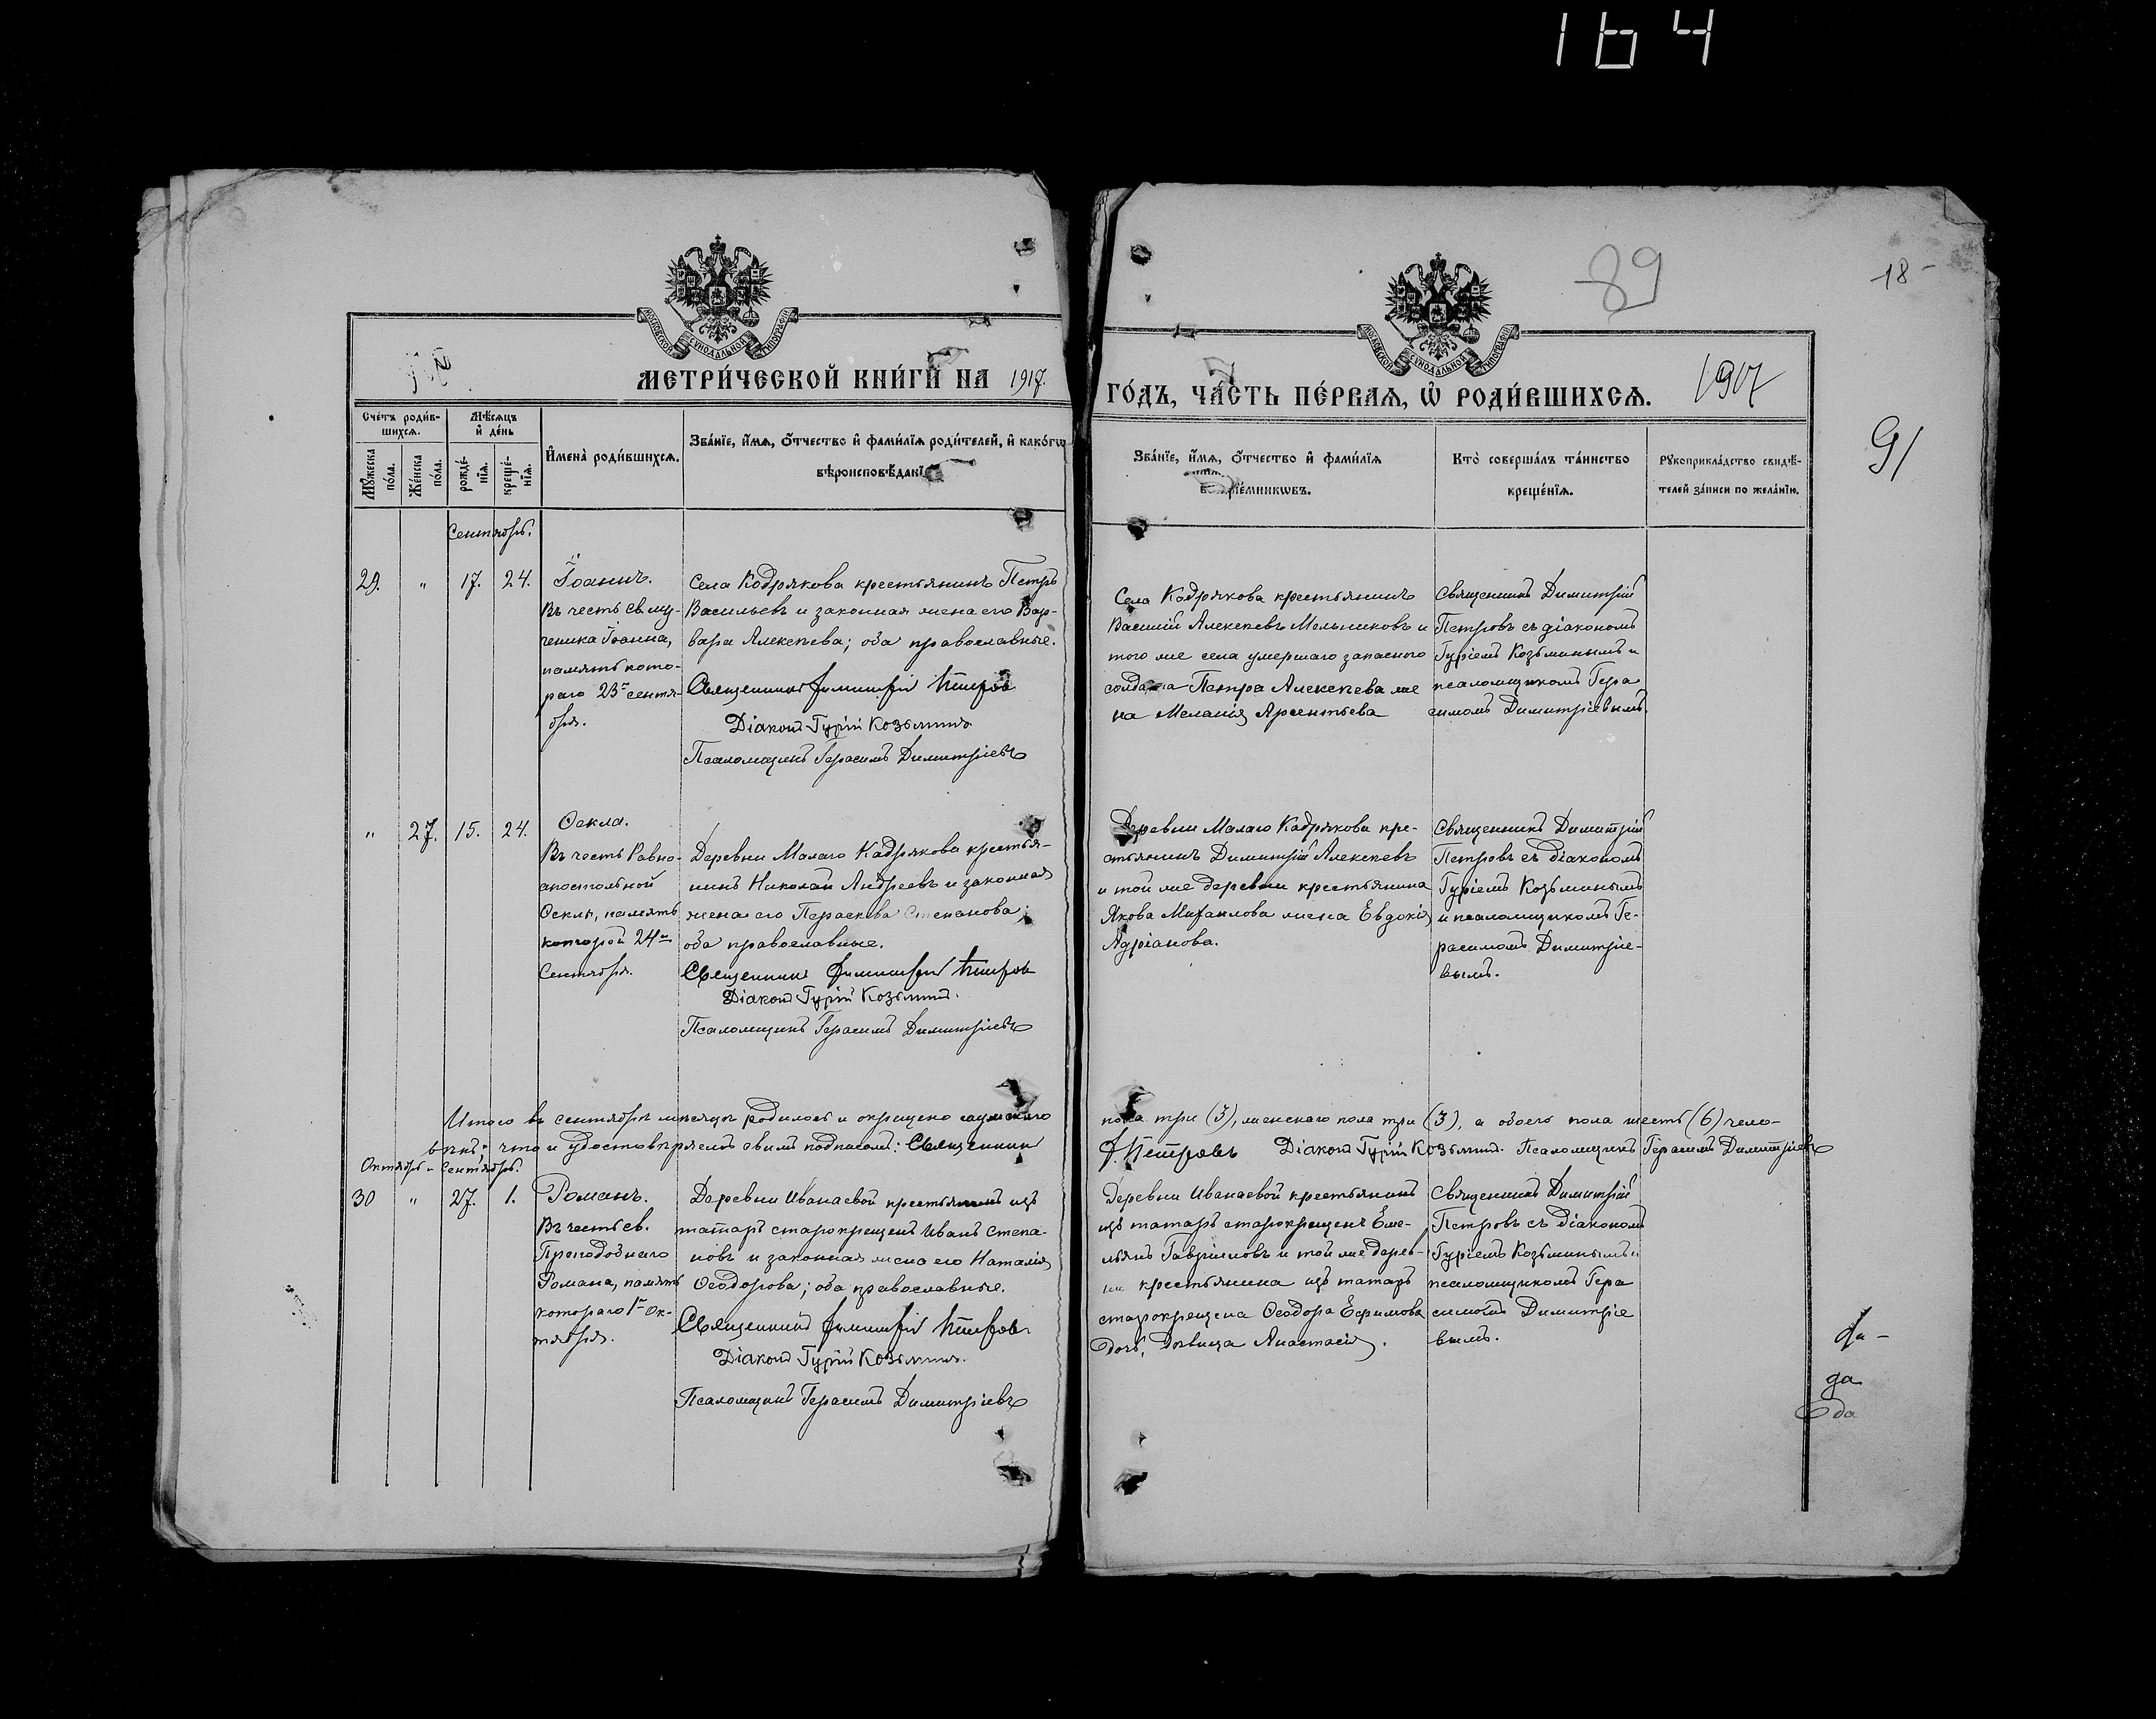 164
89
18-
МОСКОВСКОЙ СѴНОДАЛЬНОЙ ТИПОГРАФІИ
МОСКОВСКОЙ СѴНОДАЛЬНОЙ ТИПОГРАФІИ
МЕТРИ́ЧЕСКОЙ КНИ́ГИ НА 1917.
ГО́ДЪ, ЧА́СТЬ ПЕ́РВАЯ, Ѡ҆ РОДИ́ВШИХСЯ.
1917
91
Сче́тъ роди́в-
шихся.
Мѣ́сяцъ
и҆ де́нь
Мꙋ́жеска
по́ла.
Же́нска
по́ла.
рожде́-
нїя.
креще́-
нїя.
И҆мена̀ роди́вшихся.
Зва́нїе, и҆́мя, ѻ҆́тчество и҆ фами́лїя роди́телей, и҆ како́гѡ
вѣроисповѣ́данїя
Зва́нїе, и҆́мя, ѻ҆́тчество и҆ фами́лїя
воспрїе́мникѡвъ.
Кто̀ соверша́лъ та́инство
креще́нїя.
Рꙋкоприкла́дство свидѣ́-
телей за́писи по жела́нїю.
Сентябрь.
29. " 17. 24. Іоаннъ.
Въ честь св. му-
ченика Іоанна,
память кото-
раго 23го сентя-
бря.
Села Кодрякова крестьянинъ Петръ
Васильевъ и законная жена его Вар-
вара Алексѣева; оба православные.
Священникъ Димитрій Петровъ
Діаконъ Гурій Козьминъ
Псаломщикъ Герасимъ Димитріевъ
Села Кадрякова крестьянинъ
Василій Алексѣевъ Мельниковъ и
того же села умершаго запаснаго
солдата Петра Алексѣева же
на Меланія Арсентьева
Священникъ Димитрій
Петровъ съ діакономъ
Гуріемъ Козьминымъ и
псаломщикомъ Гера
симомъ Димитріевымъ.
" 27. 15. 24. Ѳекла.
Въ честь Равно-
апостольной
Ѳеклы, память
которой 24го
Сентября.
Деревни Малаго Кадрякова крестья-
нинъ Николай Андреевъ и законная
жена его Параскева Степанова;
оба православные.
Священникъ Димитрій Петровъ
Діаконъ Гурій Козьминъ.
Псаломщикъ Герасимъ Димитріевъ
Деревни Малаго Кадрякова кре-
стьянинъ Димитрій Алексѣевъ
и той же деревни крестьянина
Якова Михаилова жена Евдокія
Адріанова.
Священникъ Димитрій
Петровъ съ діакономъ
Гуріемъ Козьминымъ
и псаломщикомъ Ге-
расимомъ Димитріе-
вымъ.
Итого въ сентябрѣ мѣсяцѣ родилось и окрещено мужскаго
пола три (3), женскаго пола три (3), а обоего пола шесть (6) чело-
вѣкъ; что и удостовѣряемъ своимъ подписомъ: Священникъ
Д. Петровъ Діаконъ Гурій Козьминъ. Псаломщикъ Герасимъ Димитріевъ
Октябрь - Сентябрь.
30 " 27. 1. Романъ.
Въ честь св.
Преподобнаго
Романа, память
котораго 1го Ок-
тября.
Деревни Иванаевой крестьянинъ изъ
татаръ старокрещенъ Иванъ Степа-
новъ и законная жена его Наталія
Ѳеодорова; оба православные.
Священникъ Димитрій Петровъ
Діаконъ Гурій Козьминъ.
Псаломщикъ Герасимъ Димитріевъ
Деревни Иванаевой крестьянинъ
изъ татаръ старокрещенъ Еме-
льянъ Гавріиловъ и той же дерев-
ни крестьянина изъ татаръ
старокрещена Ѳеодора Ефимова
дочь, дѣвица Анастасія.
Священникъ Димитрій
Петровъ съ діакономъ
Гуріемъ Козьминымъ и
псаломщикомъ Гера
симомъ Димитріе
вымъ.
да
да